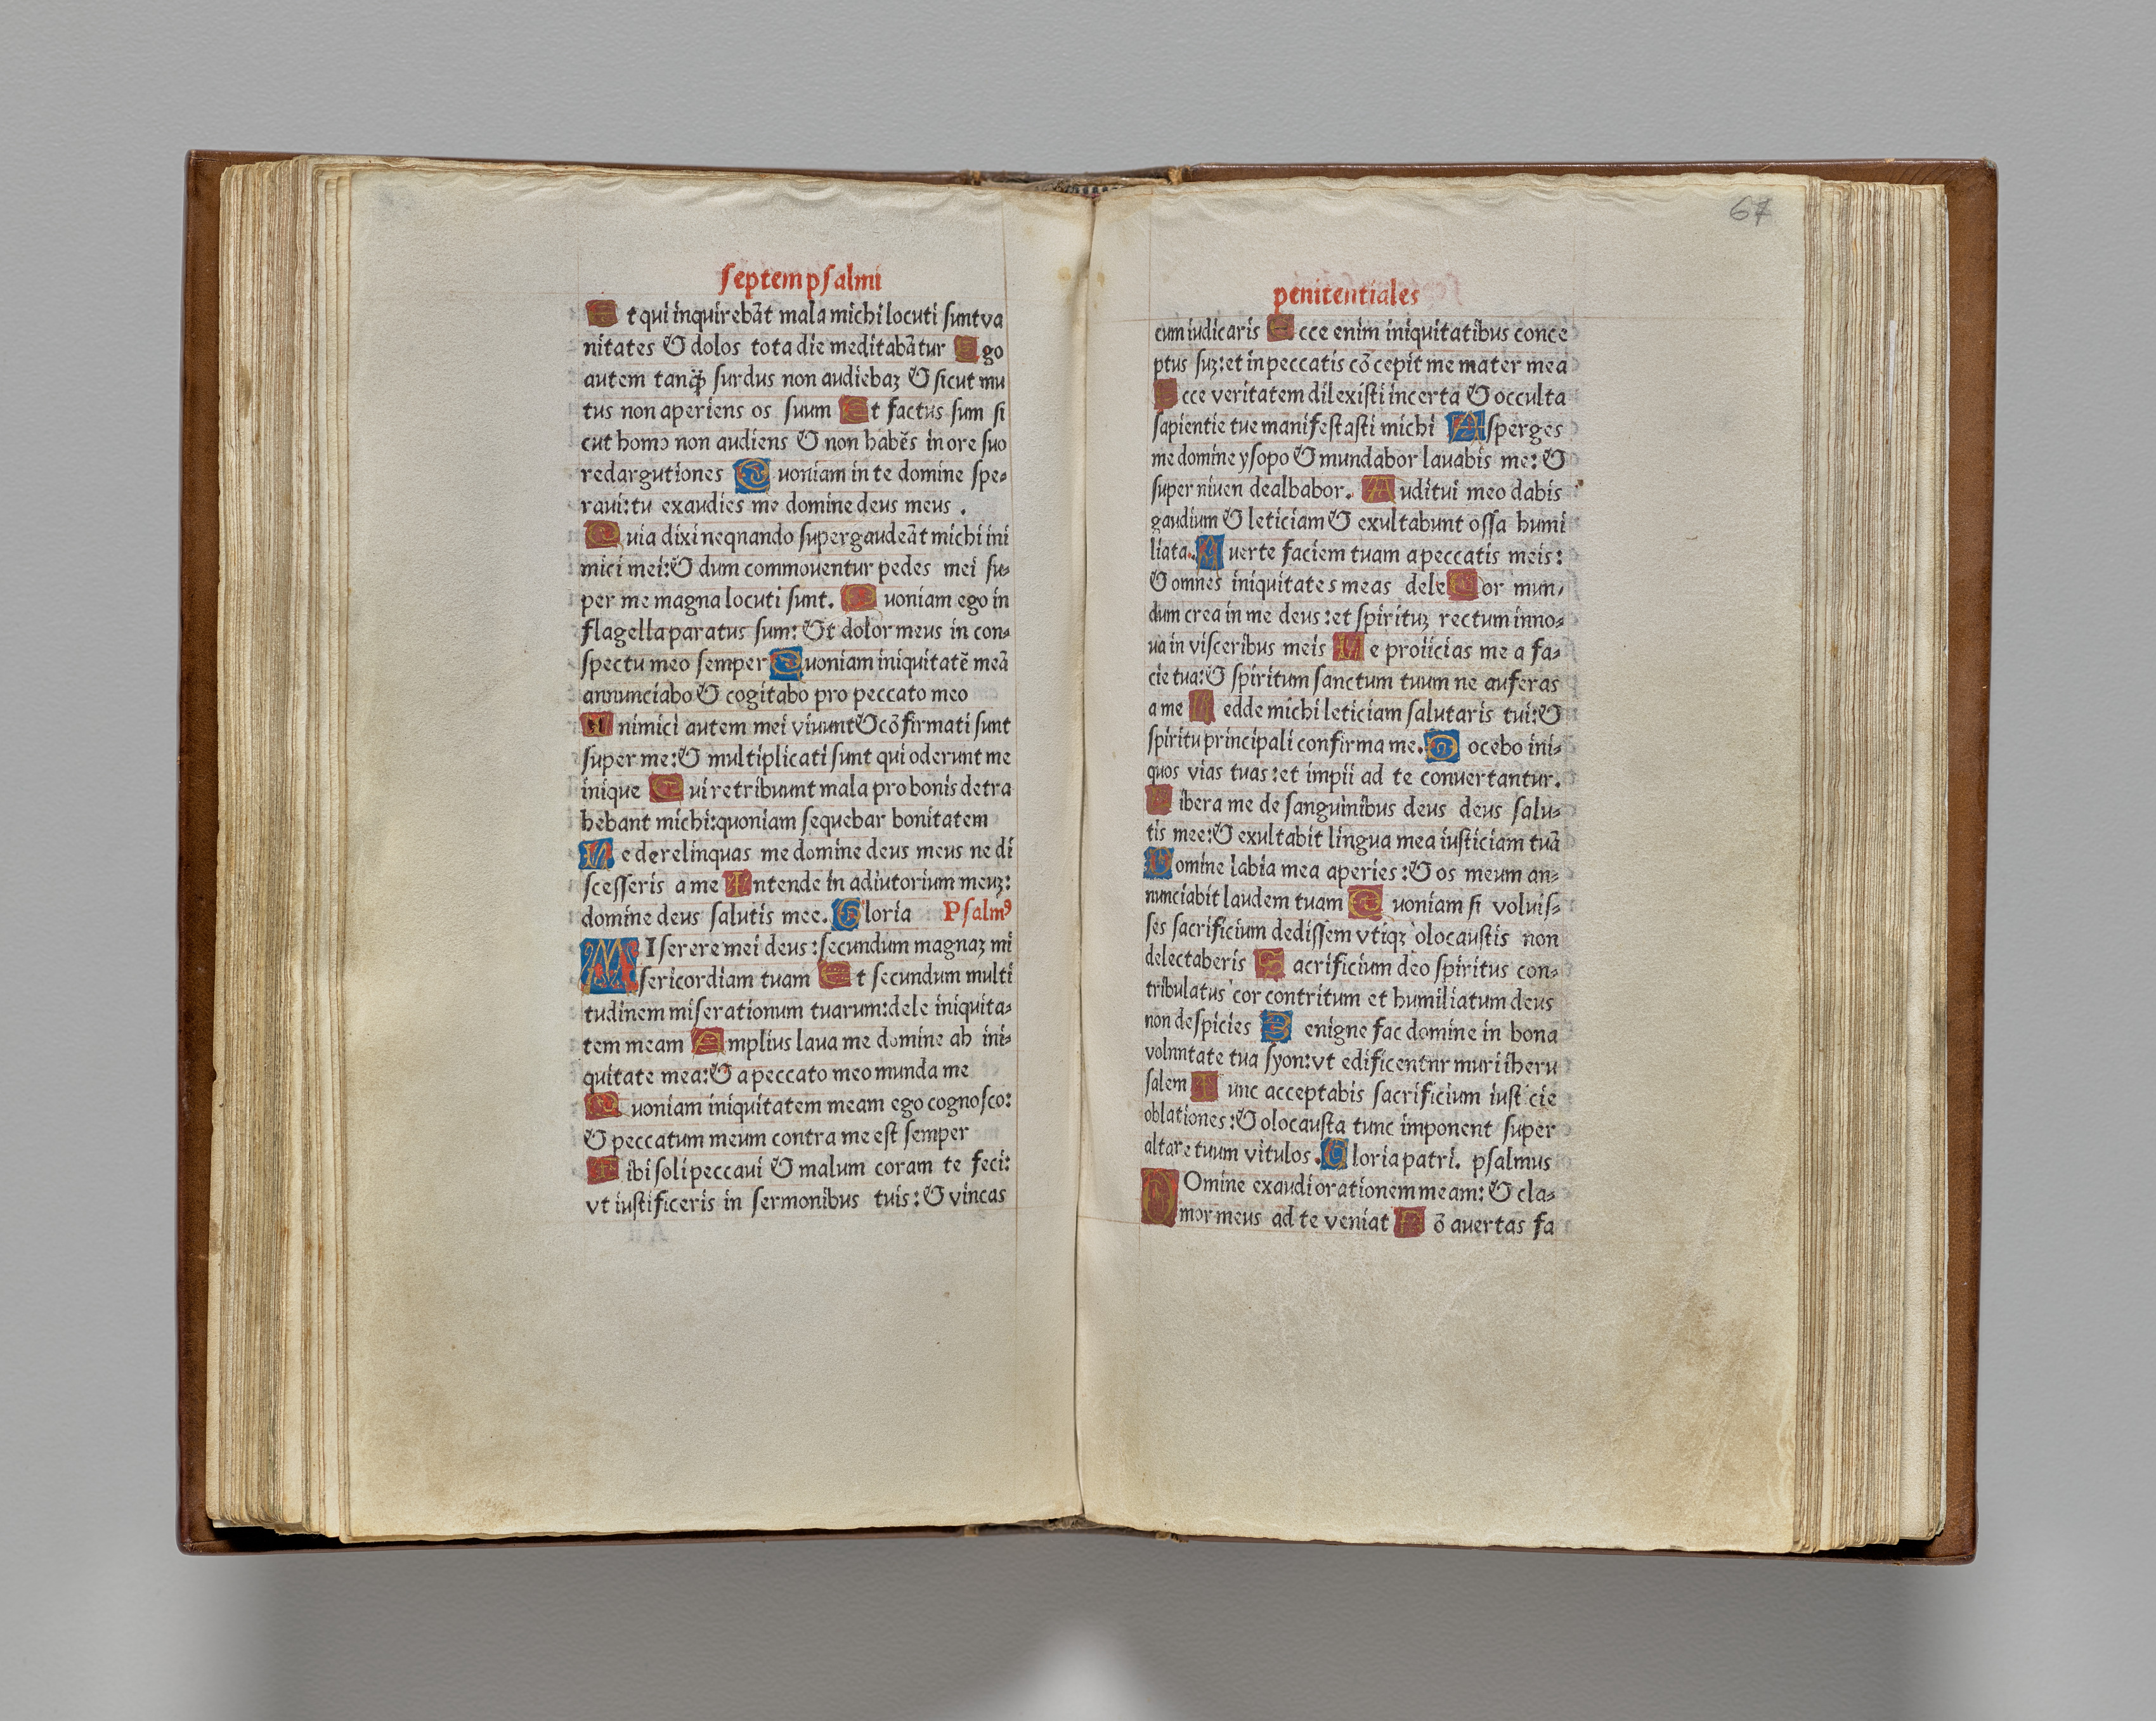 septem psalmi
Et qui inquirebãt mala michi locuti sunt va
nitates & dolos tota die meditabãtur Ego
autem tanq̃ surdus non audiebaꝫ & sicut mu
tus non aperiens os suum Et factus sum si
cut homo non audiens & non habẽs in ore suo
redargutiones Quoniam in te domine spe-
raui:tu exaudies me domine deus meus .
Quia dixi neqnando supergaudeãt michi ini
mici mei:& dum commouentur pedes mei su-
per me magna locuti sunt. Quoniam ego in
flagella paratus sum: &t dolor meus in con-
spectu meo semper Quoniam iniquitatẽ meã
annunciabo & cogitabo pro peccato meo
Inimici autem mei viuunt & cõfirmati sunt
super me:& multiplicati sunt qui oderunt me
inique Qui retribuunt mala pro bonis detra
hebant michi:quoniam sequebar bonitatem
Ne derelinquas me domine deus meus ne di
scesseris a me Intende in adiutorium meuꝫ:
domine deus salutis mee. Gloria Psalmꝰ
MIserere mei deus:secundum magnaꝫ mi
sericordiam tuam Et secundum multi
tudinem miserationum tuarum:dele iniquita-
tem meam Amplius laua me domine ab ini-
quitate mea:& a peccato meo munda me
Quoniam iniquitatem meam ego cognosco:
& peccatum meum contra me est semper
Tibi soli peccaui & malum coram te feci:
vt iustificeris in sermonibus tuis:& vincas
67
penitentiales
cum iudicaris Ecce enim iniquitatibus conce
ptus suꝫ:et in peccatis cõcepit me mater mea
Ecce veritatem dilexisti incerta & occulta
sapientie tue manifestasti michi Asperges
me domine ysopo & mundabor lauabis me:&
super niuen dealbabor. Auditui meo dabis
gaudium & leticiam & exultabunt ossa humi
liata. Auerte faciem tuam a peccatis meis:
& omnes iniquitates meas dele Cor mun-
dum crea in me deus:et spirituꝫ rectum inno-
ua in visceribus meis Ne proiicias me a fa-
cie tua:& spiritum sanctum tuum ne auferas
a me Redde michi leticiam salutaris tui:&
spiritu principali confirma me. Docebo ini-
quos vias tuas:et impii ad te conuertantur.
Libera me de sanguinibus deus deus salu-
tis mee:& exultabit lingua mea iusticiam tuã
Domine labia mea aperies:& os meum an-
nunciabit laudem tuam Quoniam si voluis-
ses sacrificium dedissem vtiqꝫ olocaustis non
delectaberis Sacrificium deo spiritus con-
tribulatus cor contritum et humiliatum deus
non despicies Benigne fac domine in bona
volnntate tua syon:vt edificentnr muri iheru
salem Tunc acceptabis sacrificium iusticie
oblationes:& olocausta tunc imponent super
altare tuum vitulos. Gloria patri. psalmus
DOmine exaudi orationem meam:& cla-
mor meus ad te veniat Nõ auertas fa